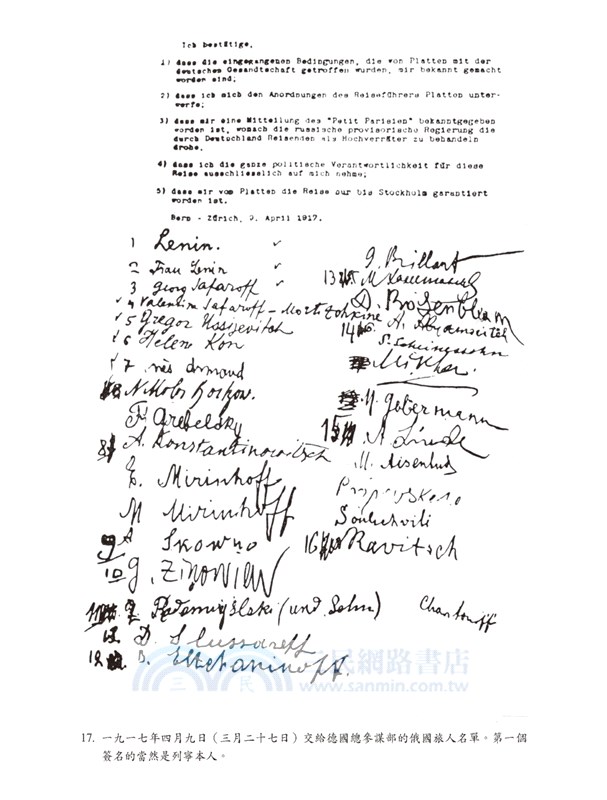 Ich bestätige,
1) dass die eingegangenen Bedingungen, die von Platten mit der
deutschen Gesandtschaft getroffen wurden, mir bekannt gemacht
worden sind;
2) dass ich mich den Anordnungen des Reiseführers Platten unter-
werfe;
3) dass mir eine Mitteilung des "Petit Parisien" bekanntgegeben
worden ist, wonach die russische provisorische Regierung die
durch Deutschland Reisenden als Hochverräter zu behandeln
drohe.
4) dass ich die ganze politische Verantwortlichkeit für diese
Reise ausschliesslich auf mich nehme;
5) dass mir von Platten die Reise nur bis Stockholm garantiert
worden ist.
Bern - Zürich, 9. April 1917.
1 Lenin.
2 Frau Lenin
3 Georg Safaroff
4 Valentina Safaroff - Mortotchkine
5 Gregor Ussijevitch
6 Helene Kon
7 Inès Armand
N. Boizow.
F. Grebelsky
A. Konstantinowitsch
E. Mirinhoff
M Mirinhoff
9 A Skowno
10 G. Zinowiew
Radomislski (und Sohn)
12 D. Slussareff
B. Eltchaninoff.
G. Brillant
13 M
D. Rosenblum
14 A. Abramovitch
S. Scheinessohn
Mikha
M. Gobermann
15 A Linde
M. Aisenhud
Pripevskeno
Souliachvili
16 Ravitsch
Charitonoff
三民網路書店
www.sanmin.com.tw
17. 一九一七年四月九日（三月二十七日）交給德國總參謀部的俄國旅人名單。第一個
簽名的當然是列寧本人。